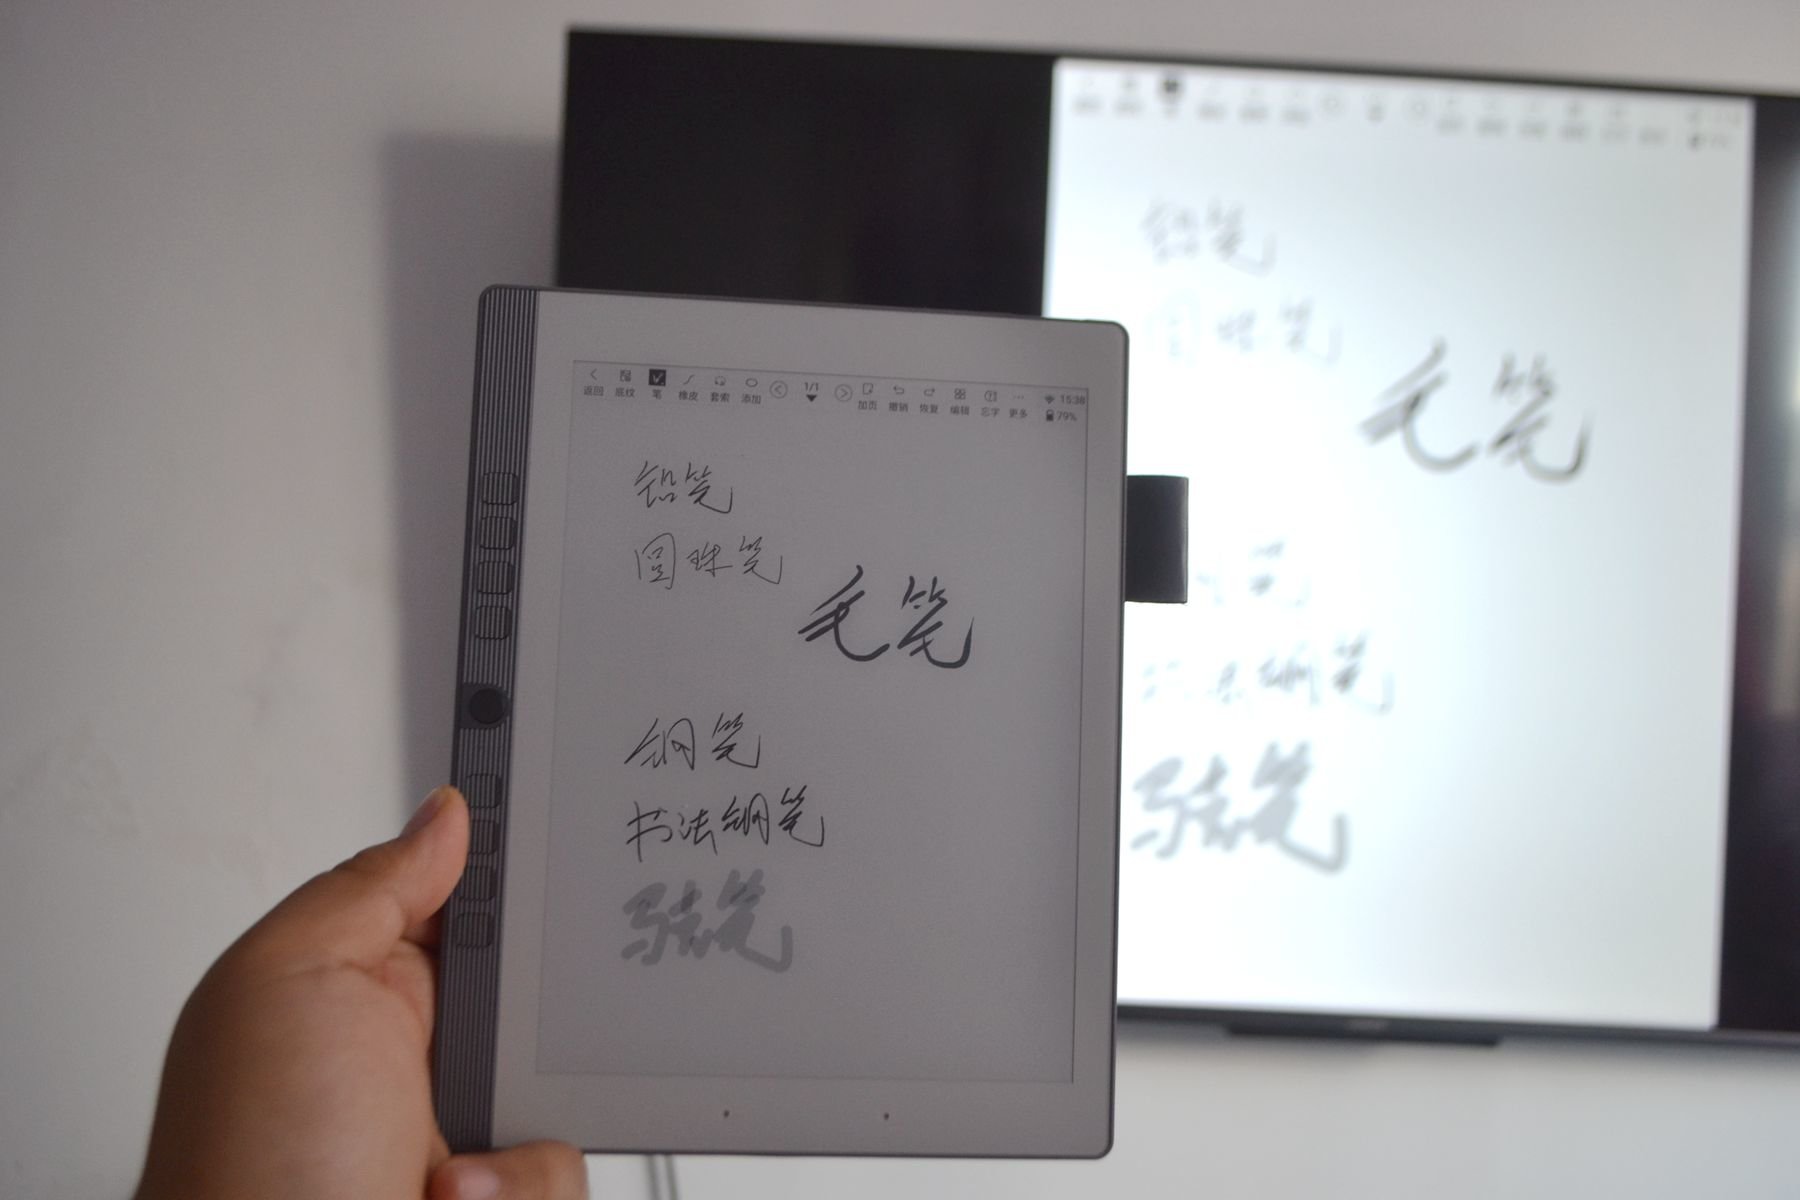 返回 底纹 笔 橡皮 套索 添加 1/1 加页 撤销 恢复 编辑 忘字 更多 15:38 79%
铅笔
圆珠笔
毛笔
钢笔
书法钢笔
马克笔
铅笔
圆珠笔
毛笔
书法钢笔
马克笔